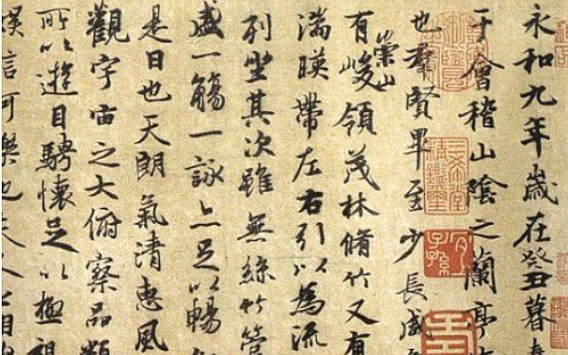 永和九年歲在癸丑暮春
于會稽山陰之蘭亭
也羣賢畢至少長咸
崇山
有峻領茂林脩竹又有
湍暎帶左右引以為流
列坐其次雖無絲竹管
盛一觴一詠亦足以暢
是日也天朗氣清惠風
觀宇宙之大俯察品類
所以遊目騁懷足以極視
信可樂也夫人之相